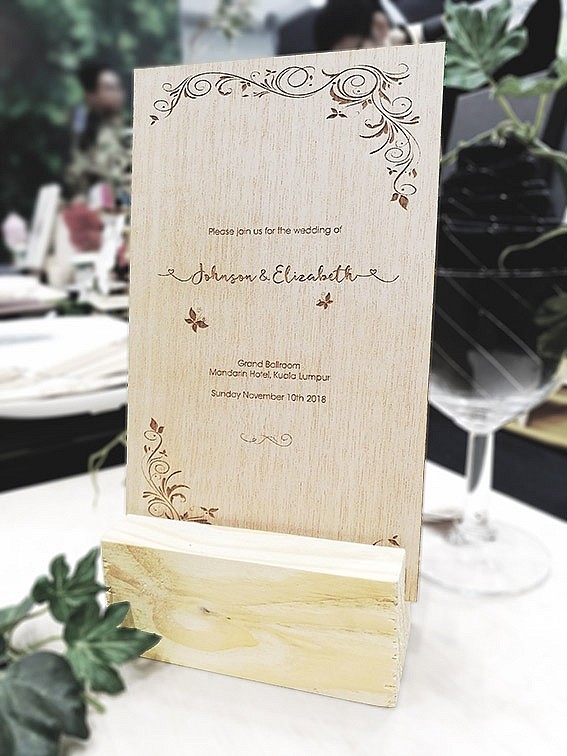 Please join us for the wedding of
Johnson & Elizabeth
Grand Ballroom
Mandarin Hotel, Kuala Lumpur
Sunday November 10th 2018